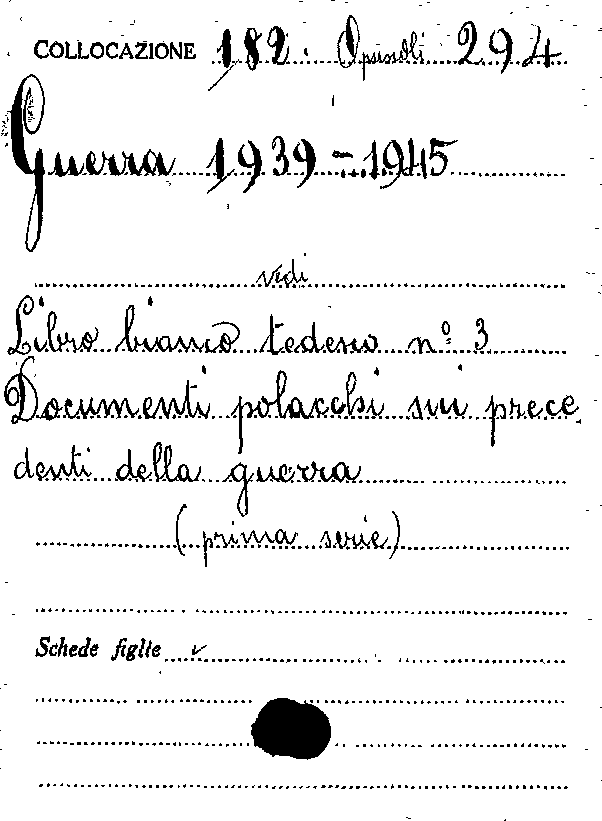 COLLOCAZIONE 182. Opuscoli 294
Guerra 1939-1945
vedi
Libro bianco tedesco nº 3
Documenti polacchi sui prece
denti della guerra
(prima serie)
Schede figlie ✓